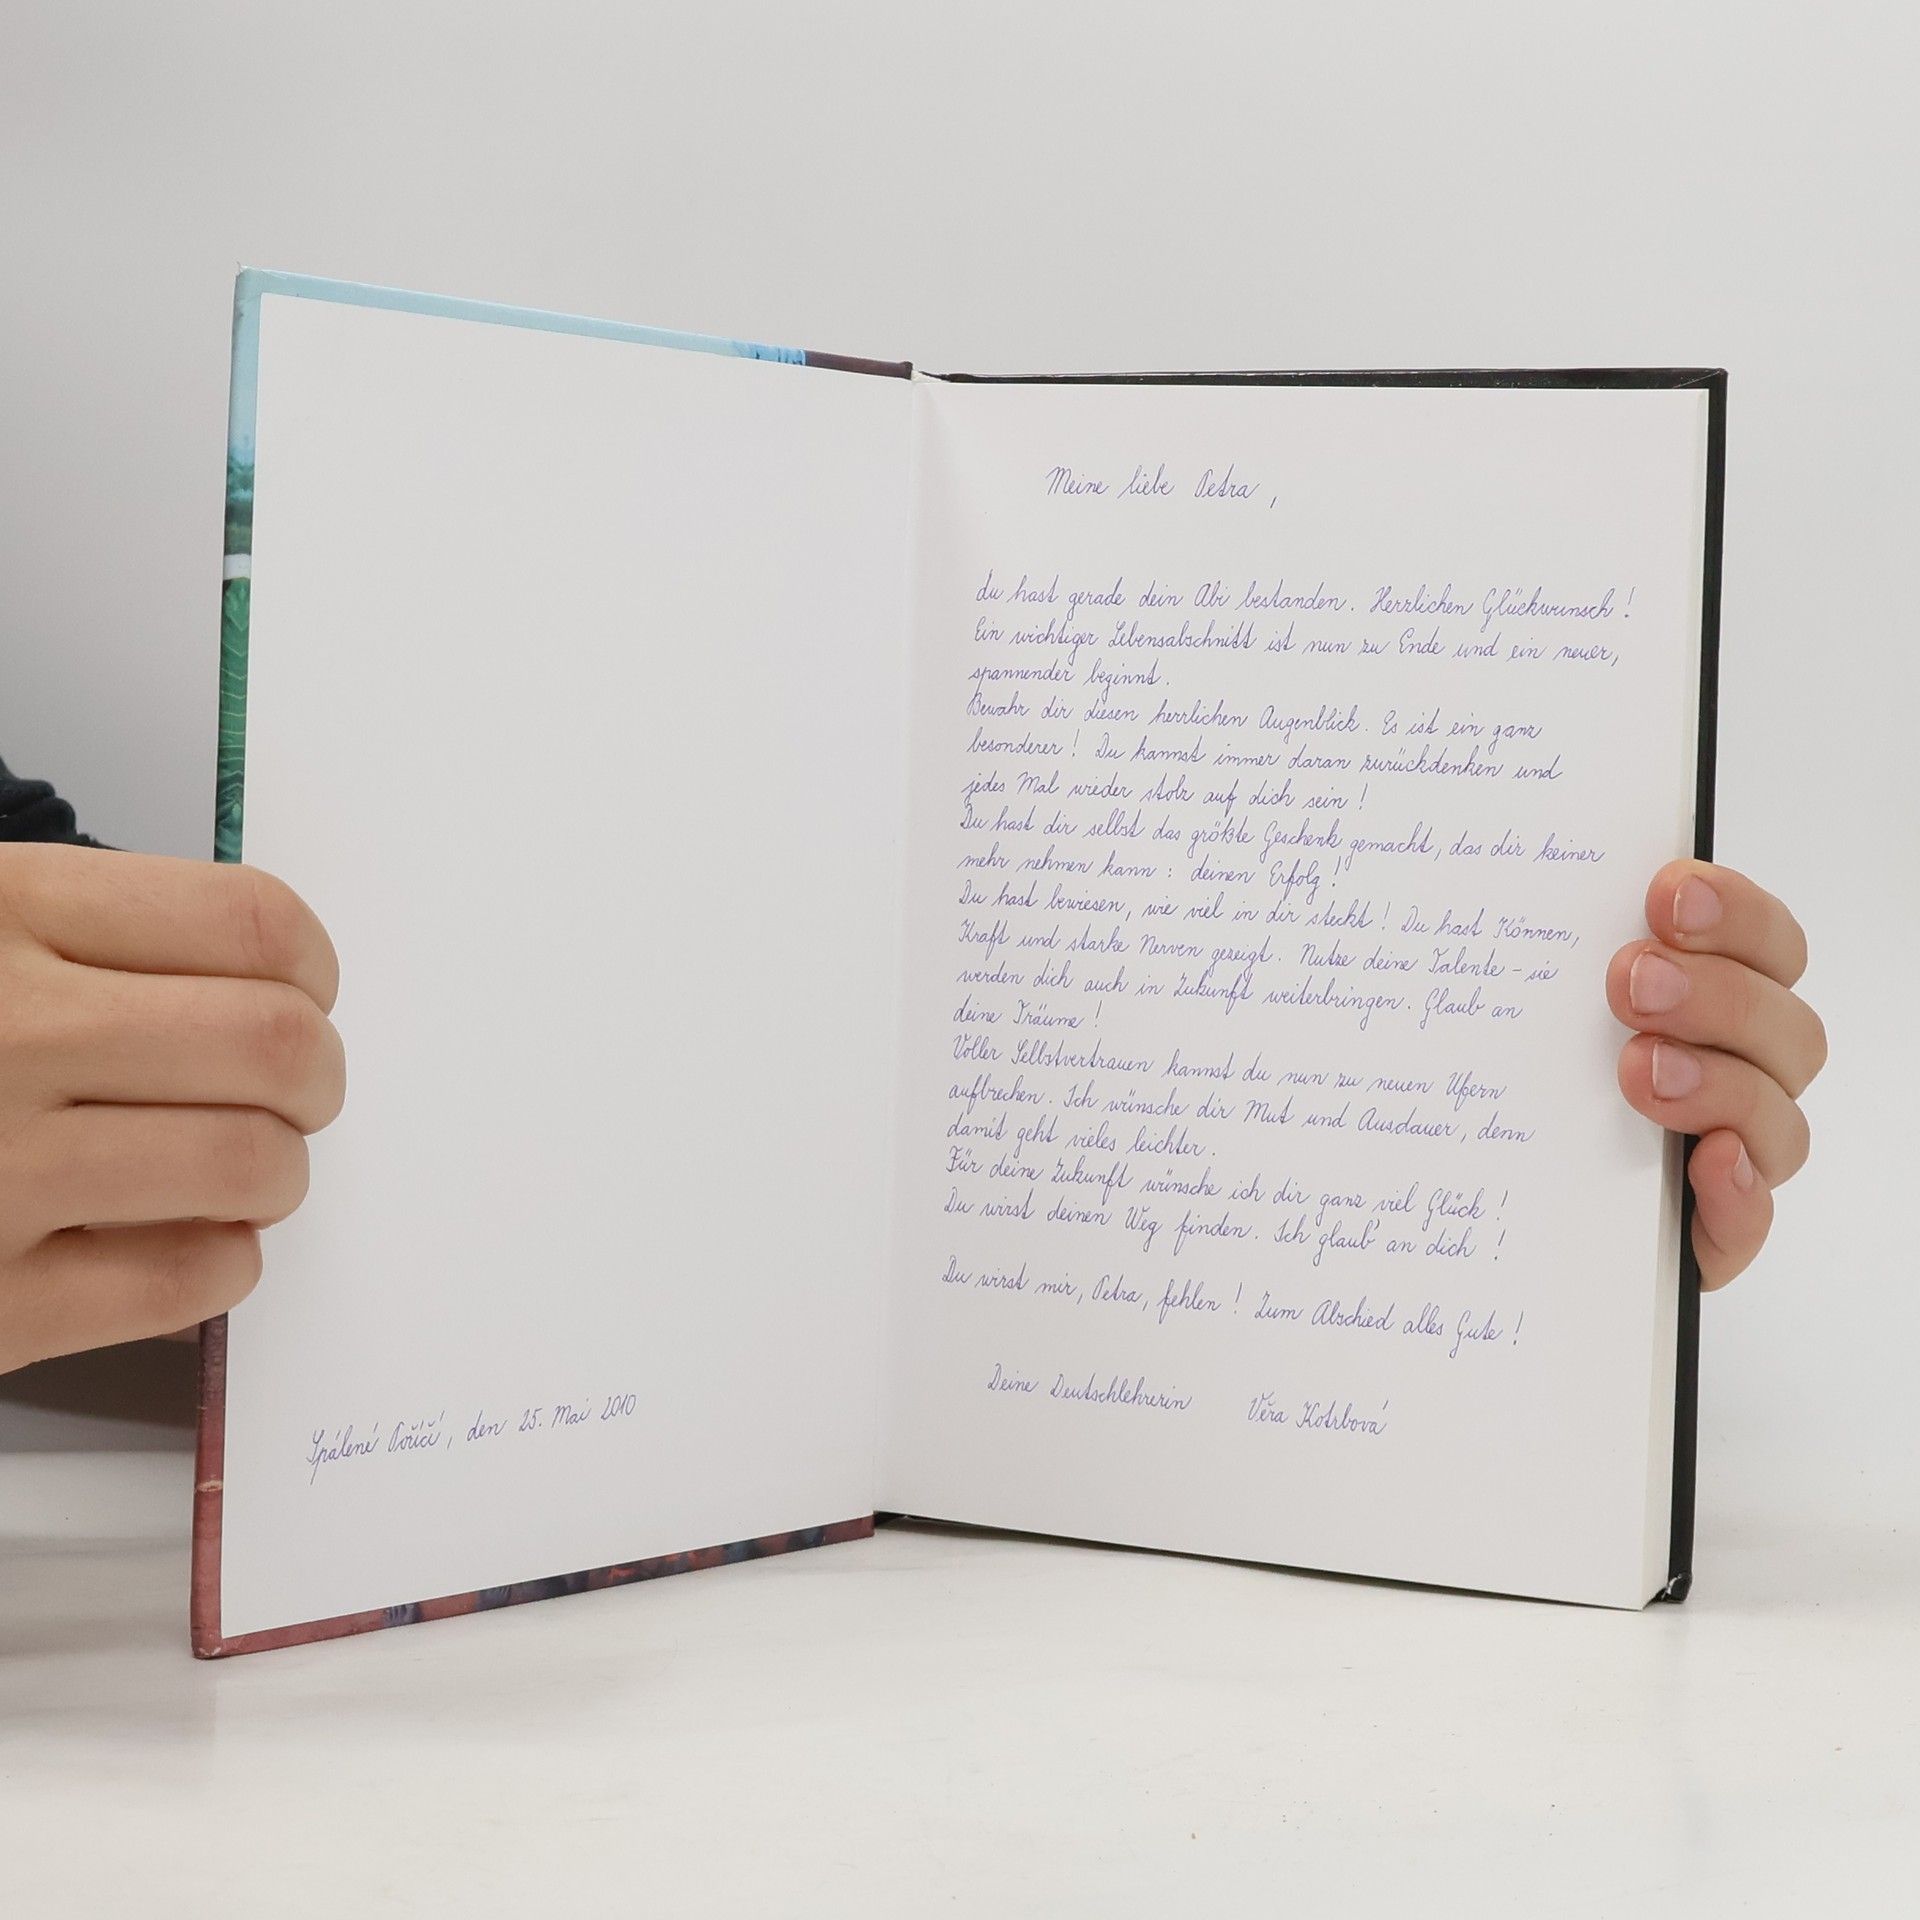 Spálené Poříčí, den 25. Mai 2010
Meine liebe Petra,
du hast gerade dein Abi bestanden. Herzlichen Glückwunsch!
Ein wichtiger Lebensabschnitt ist nun zu Ende und ein neuer,
spannender beginnt.
Bewahr dir diesen herrlichen Augenblick. Es ist ein ganz
besonderer! Du kannst immer daran zurückdenken und
jedes Mal wieder stolz auf dich sein!
Du hast dir selbst das größte Geschenk gemacht, das dir keiner
mehr nehmen kann: deinen Erfolg!
Du hast bewiesen, wie viel in dir steckt! Du hast Können,
Kraft und starke Nerven gezeigt. Nutze deine Talente - sie
werden dich auch in Zukunft weiterbringen. Glaub an
deine Träume!
Voller Selbstvertrauen kannst du nun zu neuen Ufern
aufbrechen. Ich wünsche dir Mut und Ausdauer, denn
damit geht vieles leichter.
Für deine Zukunft wünsche ich dir ganz viel Glück!
Du wirst deinen Weg finden. Ich glaub' an dich!
Du wirst mir, Petra, fehlen! Zum Abschied alles Gute!
Deine Deutschlehrerin Věra Kotrbová